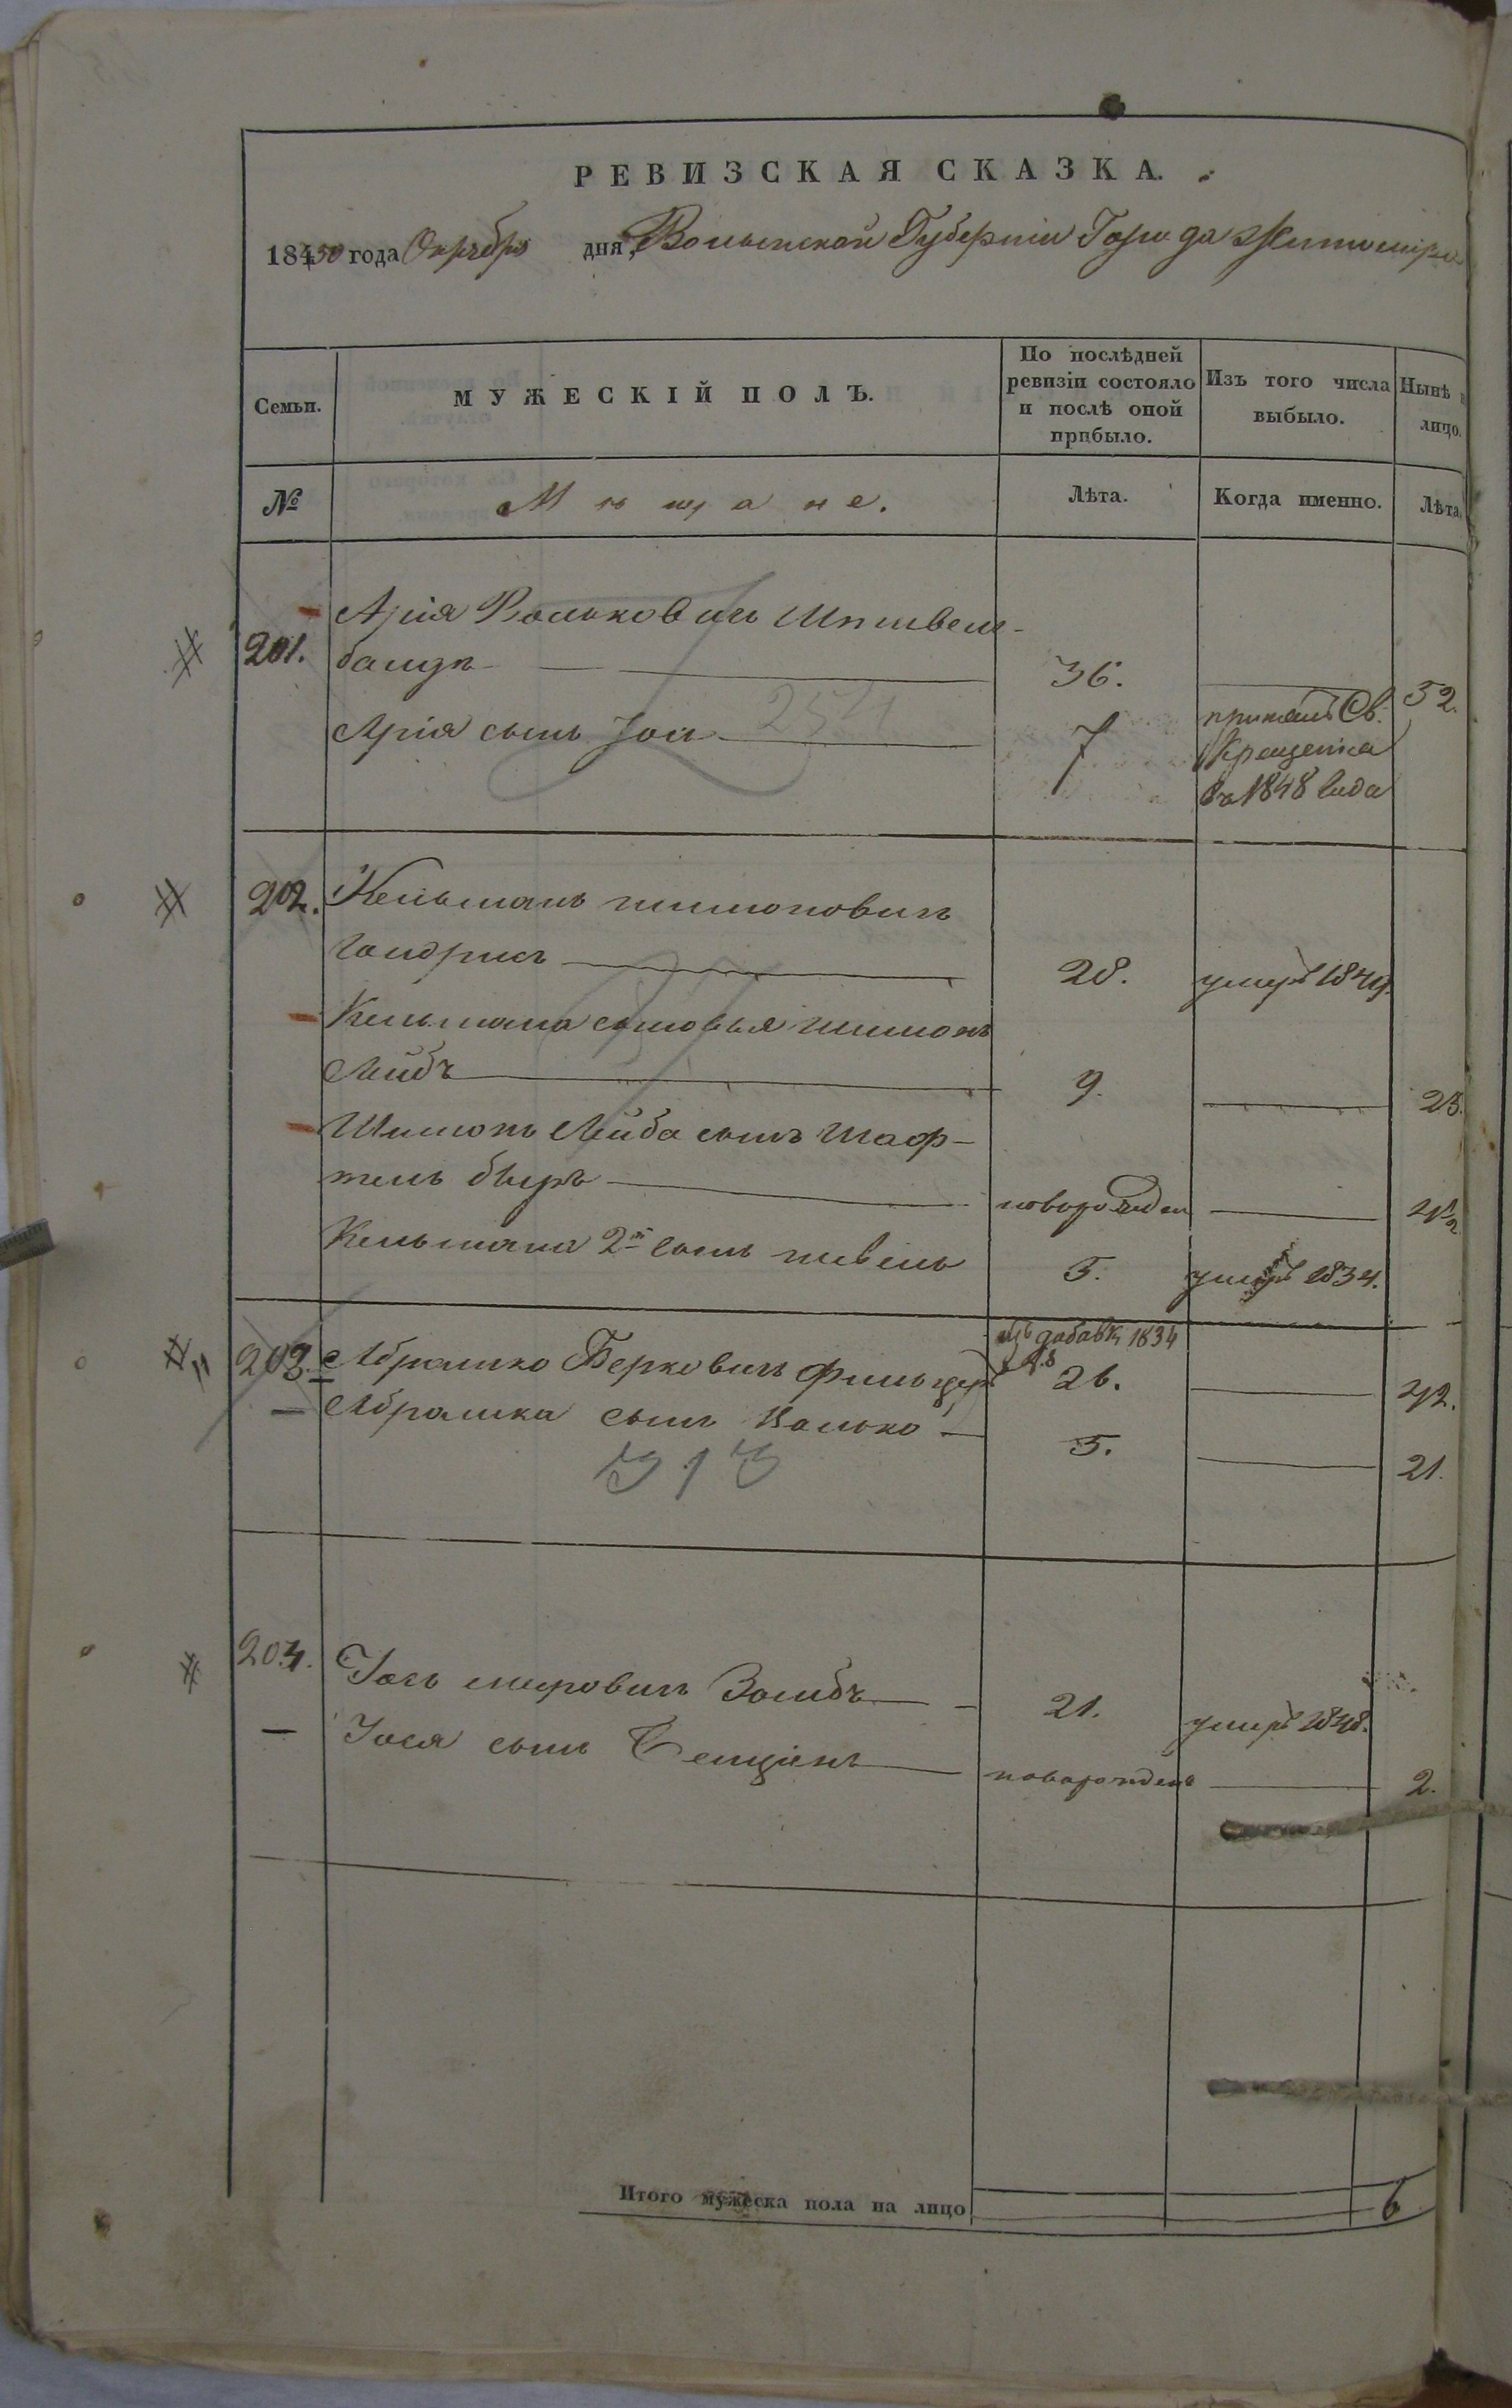 РЕВИЗСКАЯ СКАЗКА.
1850 года Октября дня, Волынской Губерніи Города Житоміра
Семьи.
МУЖЕСКІЙ ПОЛЪ.
По послѣдней ревизіи состояло и послѣ оной прибыло.
Изъ того числа выбыло.
Нынѣ лицо.
№
Мѣщане.
Лѣта.
Когда именно.
Лѣта
201.
Арія Вольковичъ
36.
52.
Арія сынъ 254
7
принялъ Св.
Крещенія
въ 1848 года
202.
Кельманъ Шимоновичъ
28. умеръ 1849.
Кельмана сыновья Шимонъ
Лейбъ 9. 25.
Шимонъ Лейба сынъ Шаф-
тель беръ новорожден
Кельмана 2й сынъ
5. умеръ 1834.
203. Абрамко Берковичъ Фильцеръ
добавк 1834
26. 42.
Абрамка сынъ Валько 5. 21.
313
204.
Іось Меровичъ 21. умеръ 1848.
Іося сынъ Бенціонъ новорожденъ 2.
Итого мужеска пола на лицо 6